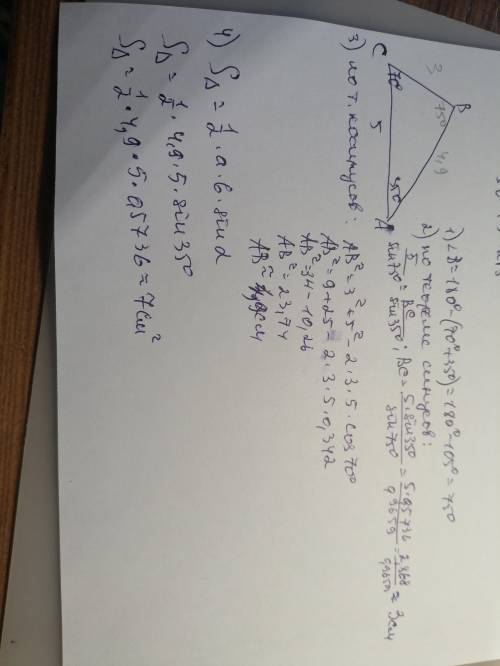 C
3
B
70°
75°
5
4,9
35°
A
1) ∠B=180°-(70°+35°)=180°-105°=75°
2) по теореме синусов:
5/sin75° = BC/sin35°; BC = 5·sin35°/sin75° = 5·0,5736/0,9659 = 2,868/0,9659 ≈ 3см
3) по т. косинусов: AB²=3²+5²-2·3·5·cos70°
AB²=9+25-2·3·5·0,342
AB²=34-10,26
AB²=23,74
AB≈4,9см
4) S△=1/2·a·b·sinα
S△=1/2·4,9·5·sin35°
S△=1/2·4,9·5·0,5736=7см²